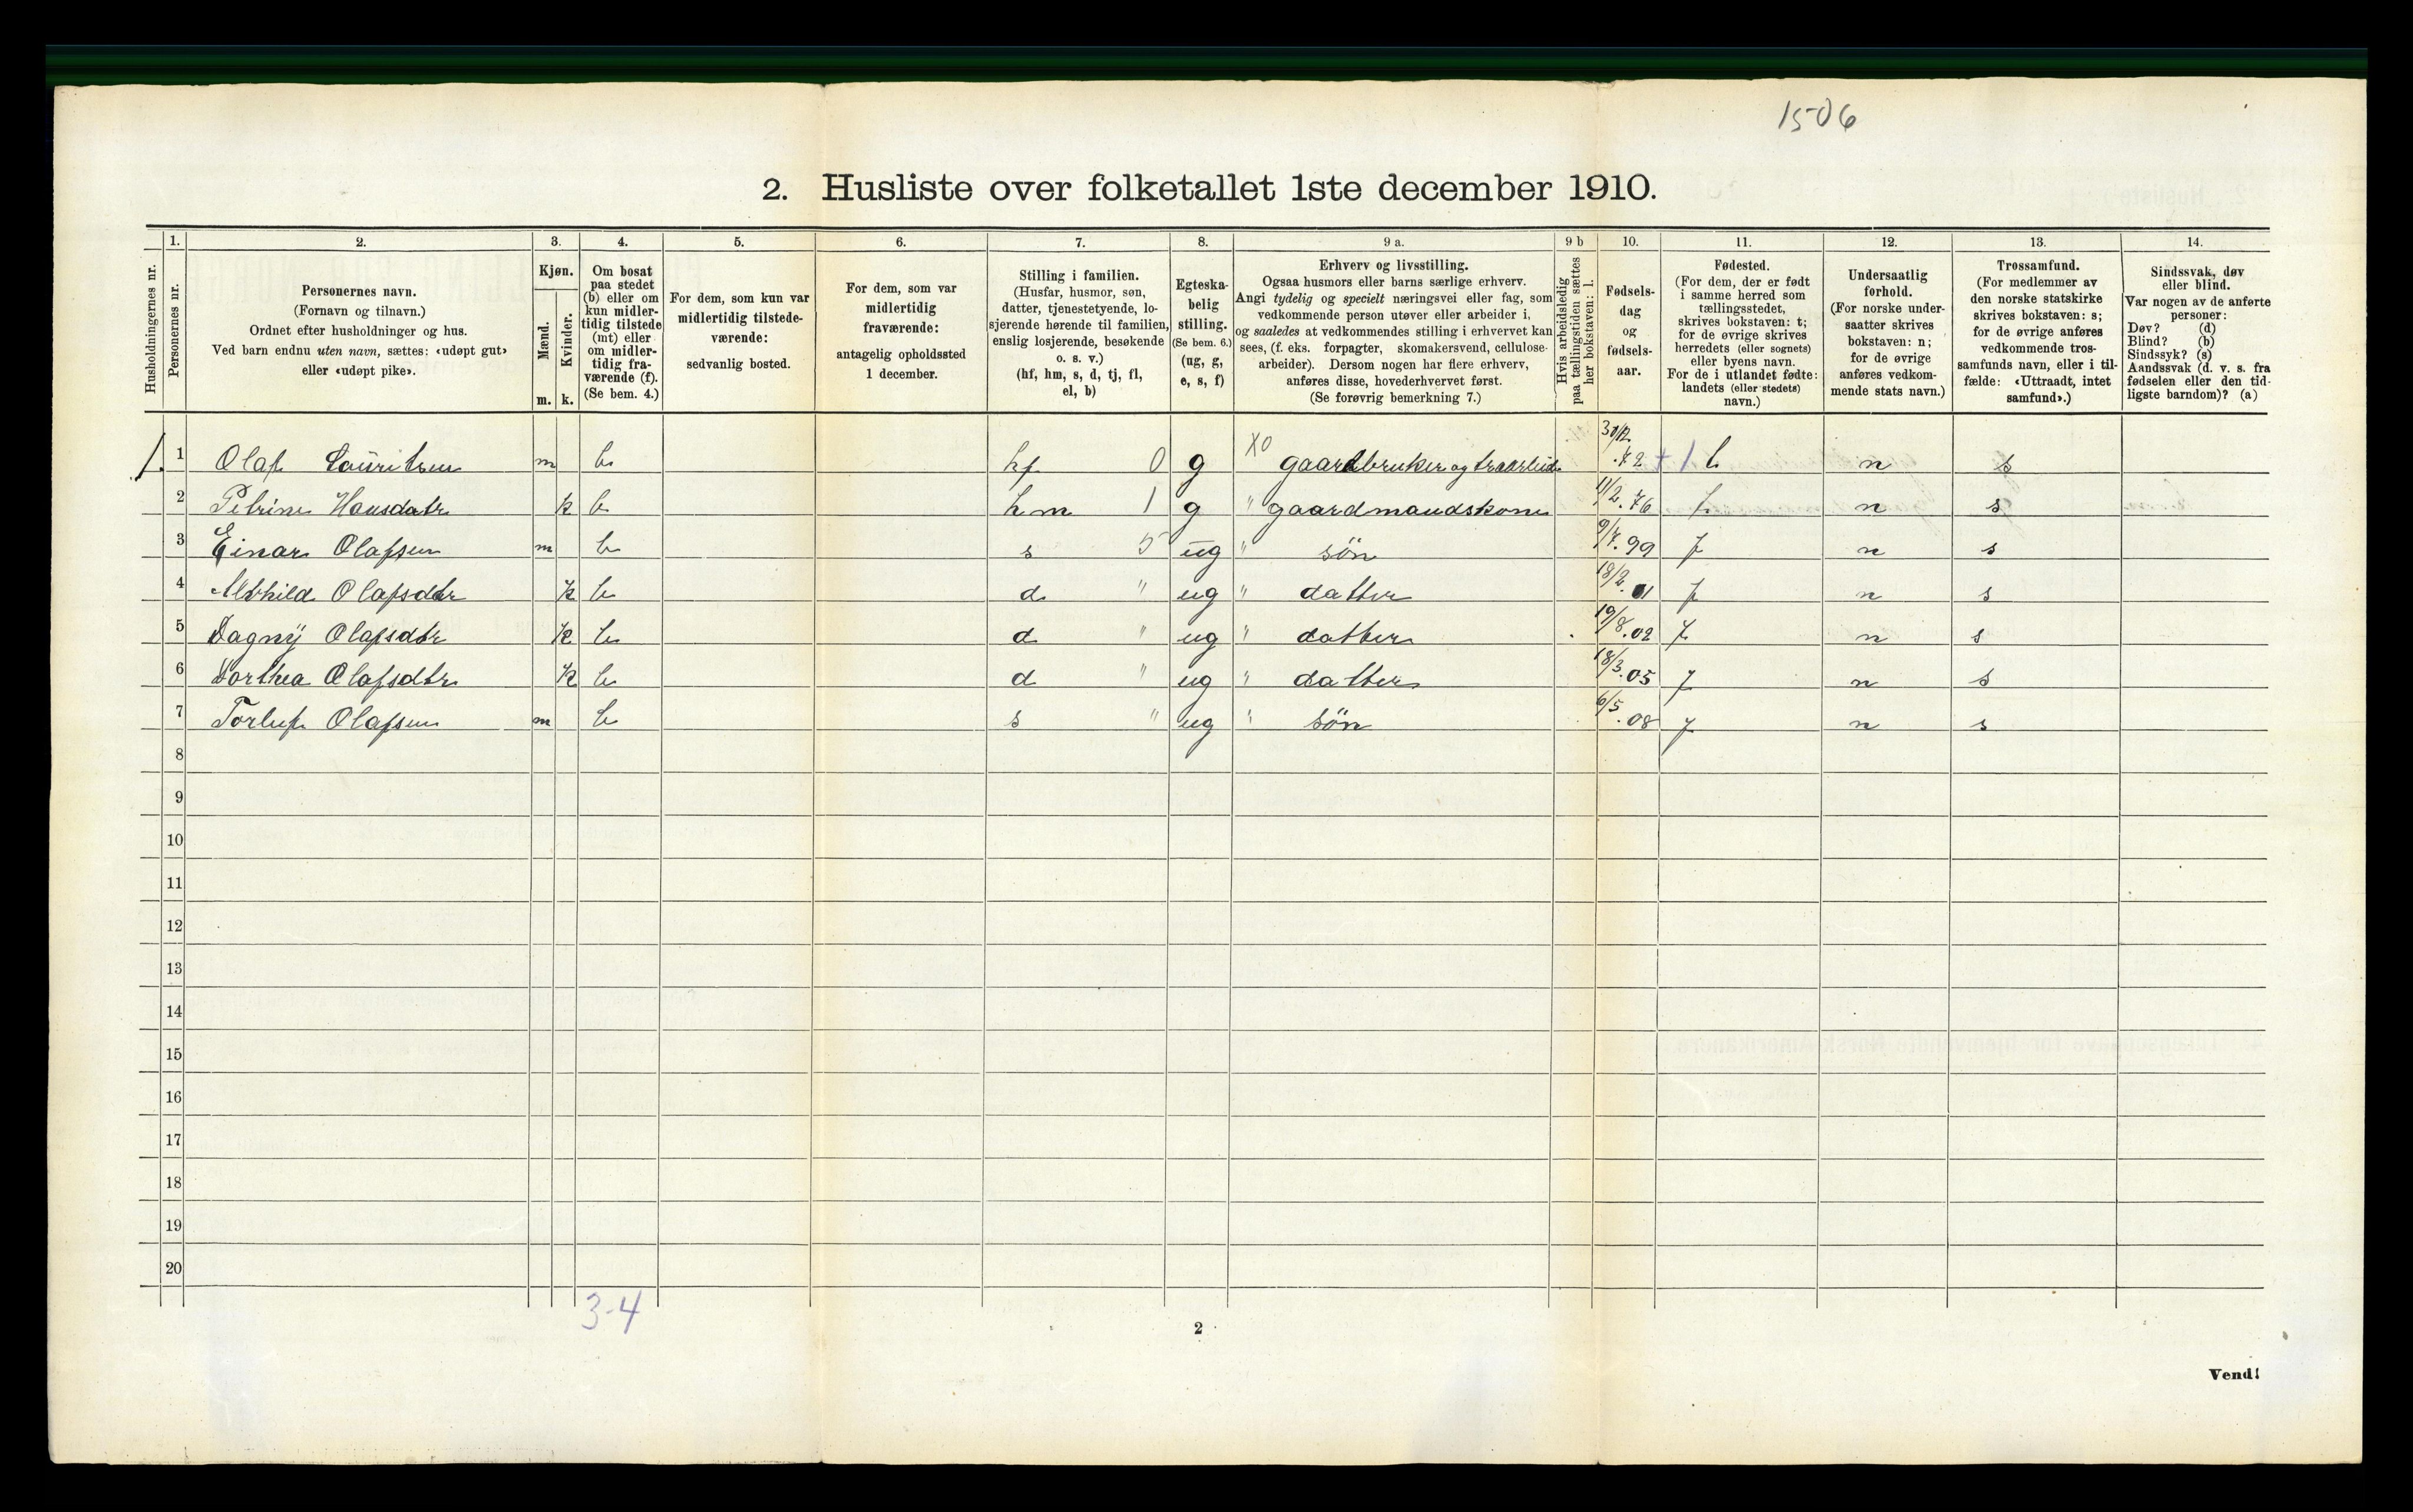 1506
2. Husliste over folketallet 1ste december 1910.
Husholdningernes nr.
1. Personernes nr.
2. Personernes navn.
(Fornavn og tilnavn.)
Ordnet efter husholdninger og hus.
Ved barn endnu uten navn, sættes: «udøpt gut»
eller «udøpt pike».
3. Kjøn.
Mænd. m.
Kvinder. k.
4. Om bosat
paa stedet
(b) eller om
kun midler-
tidig tilstede
(mt) eller
om midler-
tidig fra-
værende (f).
(Se bem. 4.)
5. For dem, som kun var
midlertidig tilstede-
værende:
sedvanlig bosted.
6. For dem, som var
midlertidig
fraværende:
antagelig opholdssted
1 december.
7. Stilling i familien.
(Husfar, husmor, søn,
datter, tjenestetyende, lo-
sjerende hørende til familien,
enslig losjerende, besøkende
o. s. v.)
(hf, hm, s, d, tj, fl,
el, b)
8. Egteska-
belig
stilling.
(Se bem. 6.)
(ug, g,
e, s, f)
9 a. Erhverv og livsstilling.
Ogsaa husmors eller barns særlige erhverv.
Angi tydelig og specielt næringsvei eller fag, som
vedkommende person utøver eller arbeider i,
og saaledes at vedkommendes stilling i erhvervet kan
sees, (f. eks. forpagter, skomakersvend, cellulose-
arbeider). Dersom nogen har flere erhverv,
anføres disse, hovederhvervet først.
(Se forøvrig bemerkning 7.)
9 b Hvis arbeidsledig
paa tællingstiden sættes
her bokstaven: l.
10. Fødsels-
dag
og
fødsels-
aar.
11. Fødested.
(For dem, der er født
i samme herred som
tællingsstedet,
skrives bokstaven: t;
for de øvrige skrives
herredets (eller sognets)
eller byens navn.
For de i utlandet fødte:
landets (eller stedets)
navn.)
12. Undersaatlig
forhold.
(For norske under-
saatter skrives
bokstaven: n;
for de øvrige
anføres vedkom-
mende stats navn.)
13. Trossamfund.
(For medlemmer av
den norske statskirke
skrives bokstaven: s;
for de øvrige anføres
vedkommende tros-
samfunds navn, eller i til-
fælde: «Uttraadt, intet
samfund».)
14. Sindssvak, døv
eller blind.
Var nogen av de anførte
personer:
Døv? (d)
Blind? (b)
Sindssyk? (s)
Aandssvak (d. v. s. fra
fødselen eller den tid-
ligste barndom)? (a)
1. 1 Olaf Lauritsen m b hf 0 g X0 gaardbruker og træarbeid 30/12 .72 + 1 t n s
2 Petrine Hansdatr k b hm 1 g " gaardmandskone 11/2. 76 n s
3 Einar Olafsen m b s 5 ug " søn 9/7. 99 n s
4 Olafsdtr k b d " ug " datter 18/2. 01 n s
5 Dagny Olafsdtr k b d " ug " datter 19/8. 02 n s
6 Dorthea Olafsdtr k b d " ug " datter 18/3. 05 n s
7 Torleif Olafsen m b s " ug " søn 6/5. 08 n s
8
9
10
11
12
13
14
15
16
17
18
19
20
3-4
2
Vend!